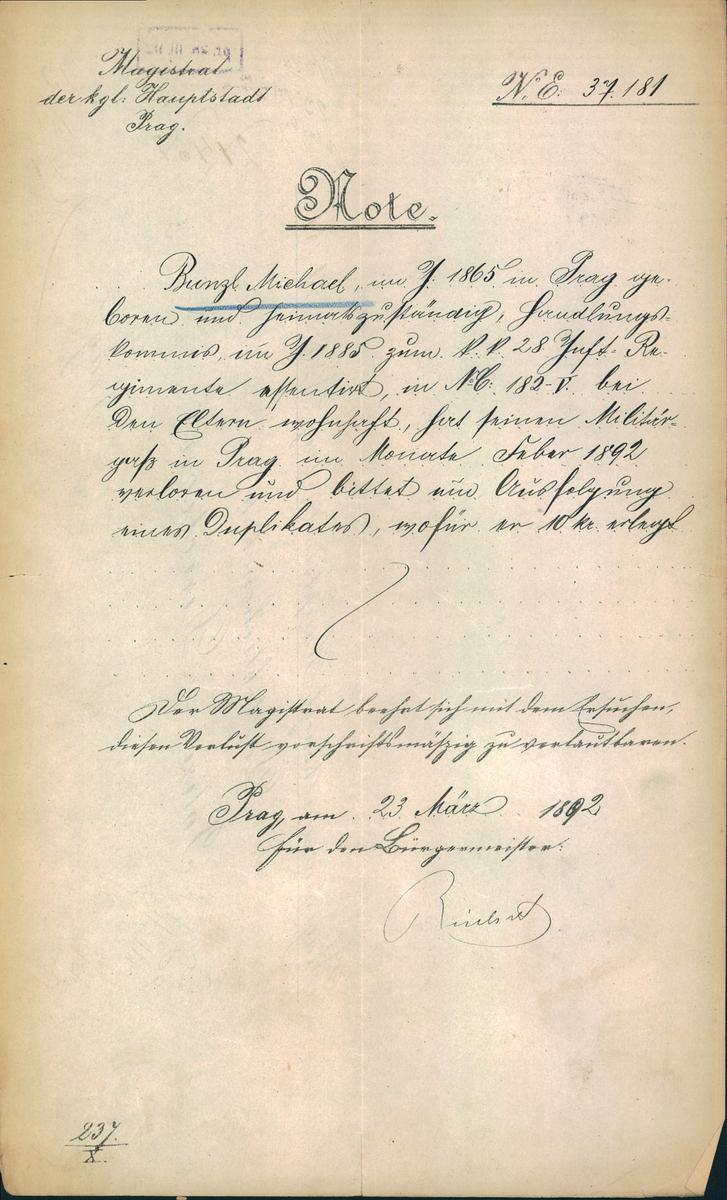 Magistrat
der kgl: Hauptstadt
Prag.
N. E: 37.181
Note.
Bunzl Michael, im J. 1865 in Prag ge-
boren und heimatszuständig, Handlungs-
kommis, im J. 1885 zum k. k. 28 Inft- Re-
gimente assentirt, in NC: 182-V. bei
den Eltern wohnhaft, hat seinen Militär-
paß in Prag im Monate Feber 1892
verloren und bittet um Ausfolgung
eines Duplikates, wofür er 10 kr. erlegt
Der Magistrat beehrt sich mit dem Ersuchen,
diesen Verlust vorschriftsmäßig zu verlautbaren.
Prag, am 23 März 1892
Für den Bürgermeister:
237.
X.